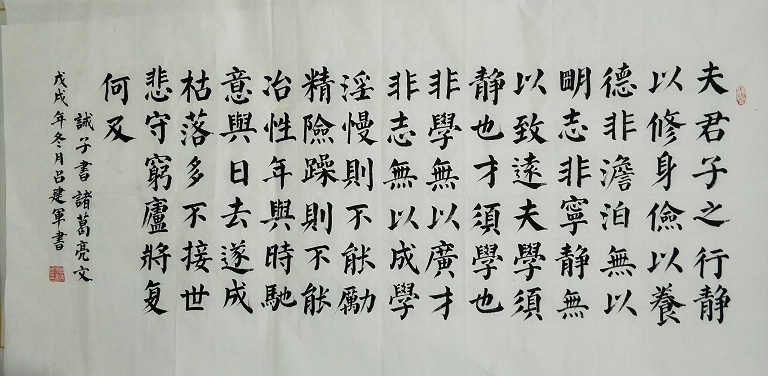 夫君子之行静
以修身儉以養
德非澹泊無以
明志非寧静無
以致遠夫學須
静也才須學也
非學無以廣才
非志無以成學
淫慢則不能勵
精險躁則不能
冶性年與時馳
意與日去遂成
枯落多不接世
悲守窮廬將复
何及
誡子書諸葛亮文
戊戌年冬月吕建軍書